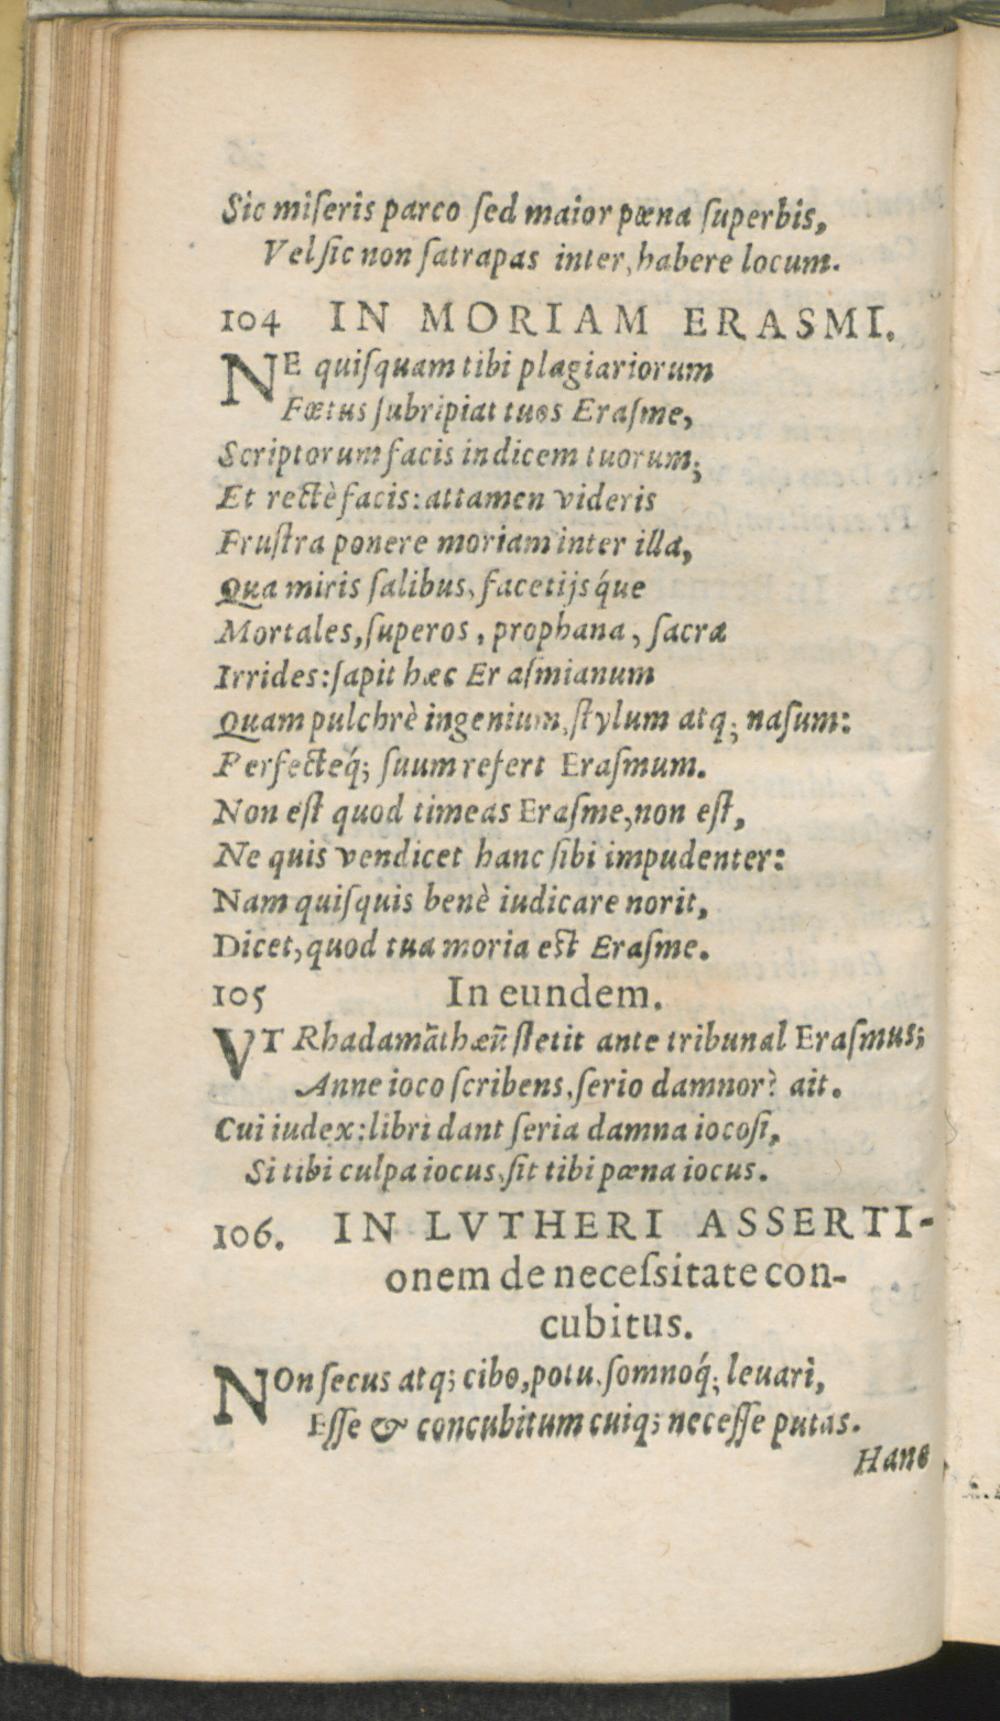 Sic miſeris parco ſed maior pœna ſuperbis,
Vel ſic non ſatrapas inter, habere locum.
104 IN MORIAM ERASMI.
NE quiſquam tibi plagiariorum
Fœtus ſubripiat tuos Eraſme,
Scriptorum facis indicem tuorum;
Et rectè facis: attamen videris
Fruſtra ponere moriam inter illa,
Qua miris ſalibus, facetijsq́ue
Mortales, ſuperos, prophana, ſacra
Irrides: ſapit hæc Eraſmianum
Quam pulchrè ingenium, ſtylum atq; naſum:
Perfecteq́; ſuum refert Eraſmum.
Non eſt quod timeas Eraſme, non eſt,
Ne quis vendicet hanc ſibi impudenter:
Nam quiſquis benè iudicare norit,
Dicet, quod tua moria eſt Eraſme.
105 In eundem.
VT Rhadamãthæũ ſtetit ante tribunal Eraſmus;
Anne ioco ſcribens, ſerio damnor? ait.
Cui iudex: libri dant ſeria damna iocoſi,
Si tibi culpa iocus, ſit tibi pœna iocus.
106. IN LVTHERI ASSERTI-
onem de neceſsitate con-
cubitus.
NOn ſecus atq; cibo, potu, ſomnoq́; leuari,
Eſſe & concubitum cuiq; neceſſe putas.
Hanc